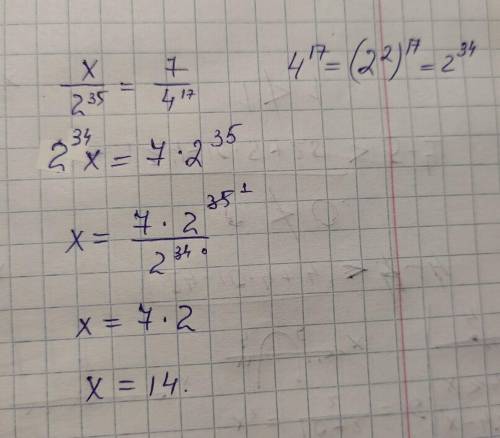 x/2^35 = 7/4^17    4^17 = (2^2)^17 = 2^34
2^34 x = 7 · 2^35
x = 7 · 2^35 1 / 2^34
x = 7 · 2
x = 14.